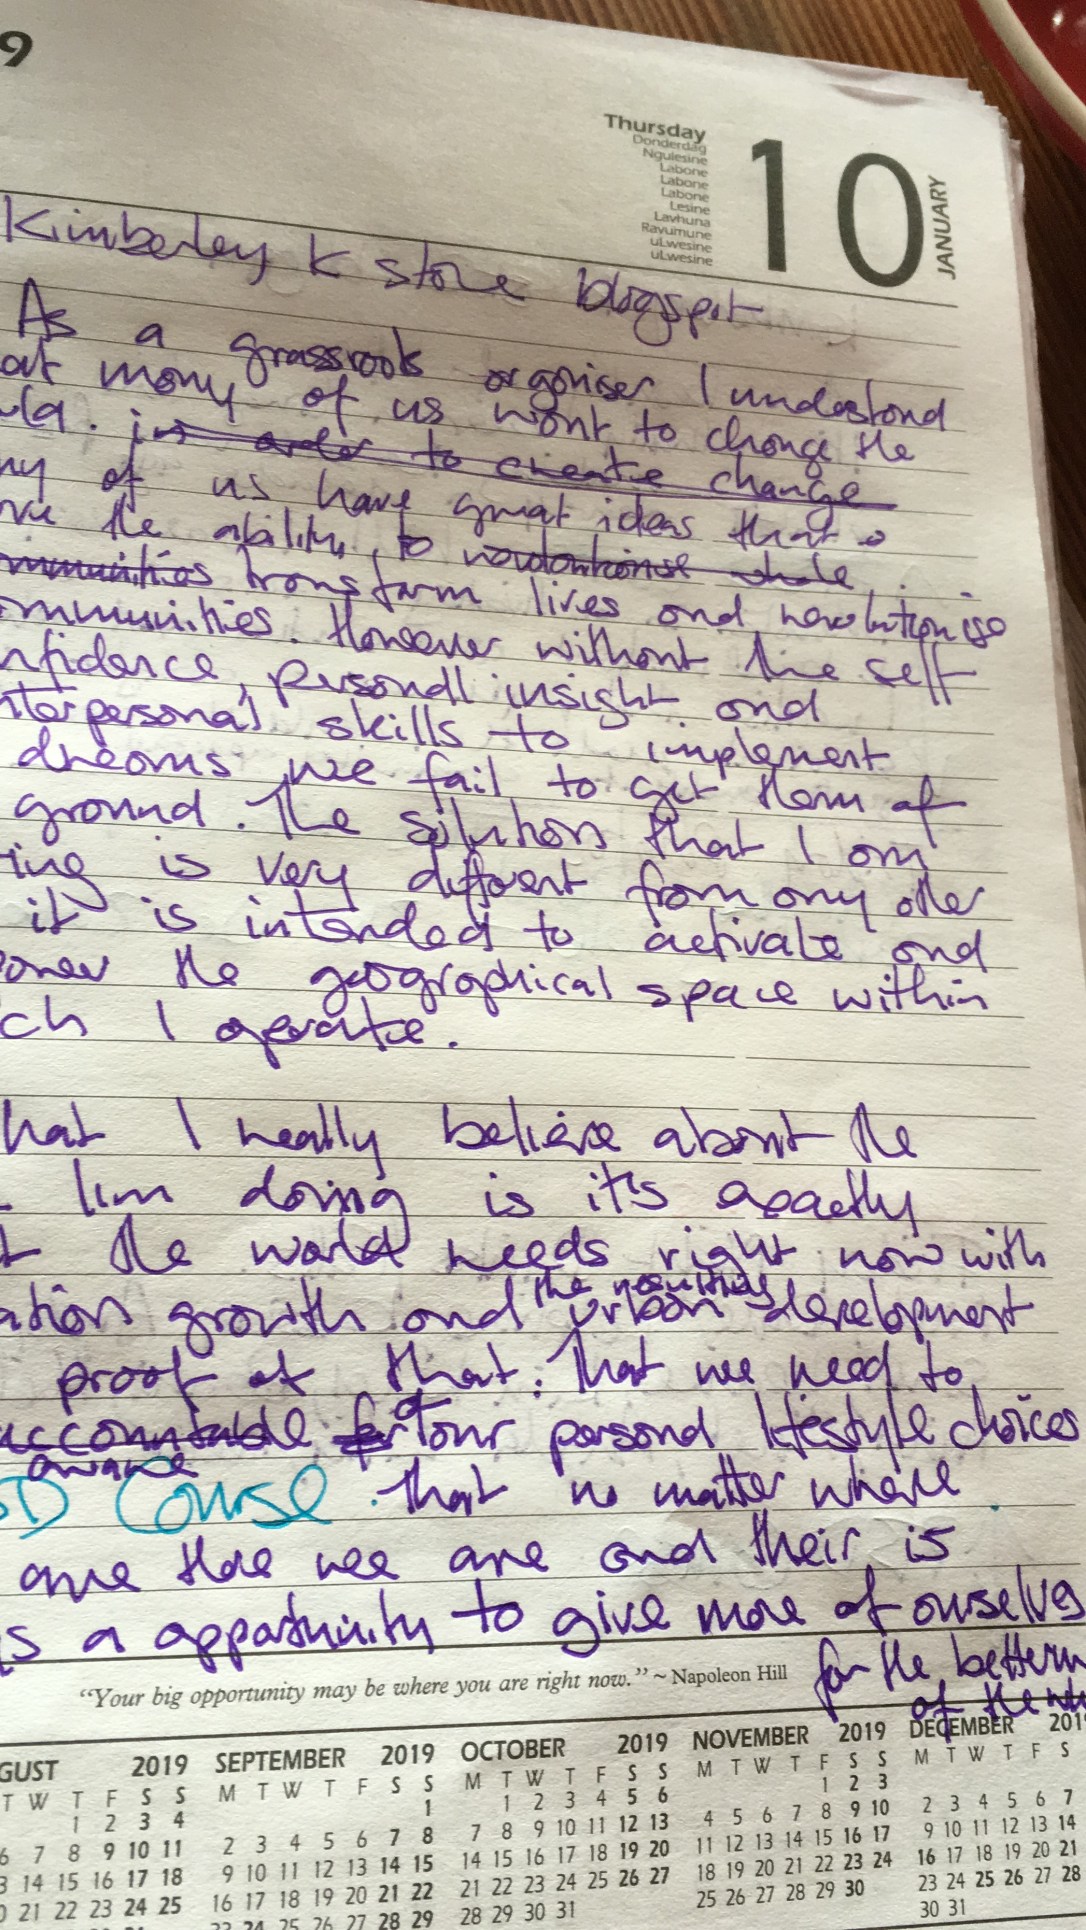 9
Thursday
Donderdag
Ngulesine
Labone
Labone
Labone
Lesine
Lavhuna
Ravumune
uLwesine
uLwesine
10
JANUARY
Kimberley K stone blogspot
As a grassroots organiser I understand
at many of us want to change the
in order to create change
ny of us have great ideas that
the ability to whole
mmunities transform lives and revolutionise
ommunities. However without the self
nfidence, personal insight and
nterpersonal skills to implement
dreams we fail to get them of
ground. The solution that I am
ing is very different from any other
it is intended to activate and
the geographical space within
ch I operate.
hat I really believe about the
I'm doing is it's exactly
t the world needs right now with
ation growth and urban development
the
proof of that. That we need to
accountable for of our personal lifestyle choices
aware
D Course. That no matter where
are and their is
s a opportunity to give more of ourselves
for the betterm
of the
"Your big opportunity may be where you are right now." ~ Napoleon Hill
GUST 2019 SEPTEMBER 2019 OCTOBER 2019 NOVEMBER 2019 DECEMBER 201
T W T F S S M T W T F S S M T W T F S S M T W T F S S M T W T F S
1 2 3 4 1 1 2 3 4 5 6 1 2 3
6 7 8 9 10 11 2 3 4 5 6 7 8 7 8 9 10 11 12 13 4 5 6 7 8 9 10 2 3 4 5 6 7
3 14 15 16 17 18 9 10 11 12 13 14 15 14 15 16 17 18 19 20 11 12 13 14 15 16 17 9 10 11 12 13 14
0 21 22 23 24 25 16 17 18 19 20 21 22 21 22 23 24 25 26 27 18 19 20 21 22 23 24 16 17 18 19 20 21
23 24 25 26 27 28 29 28 29 30 31 25 26 27 28 29 30 23 24 25 26 27 28
30 31